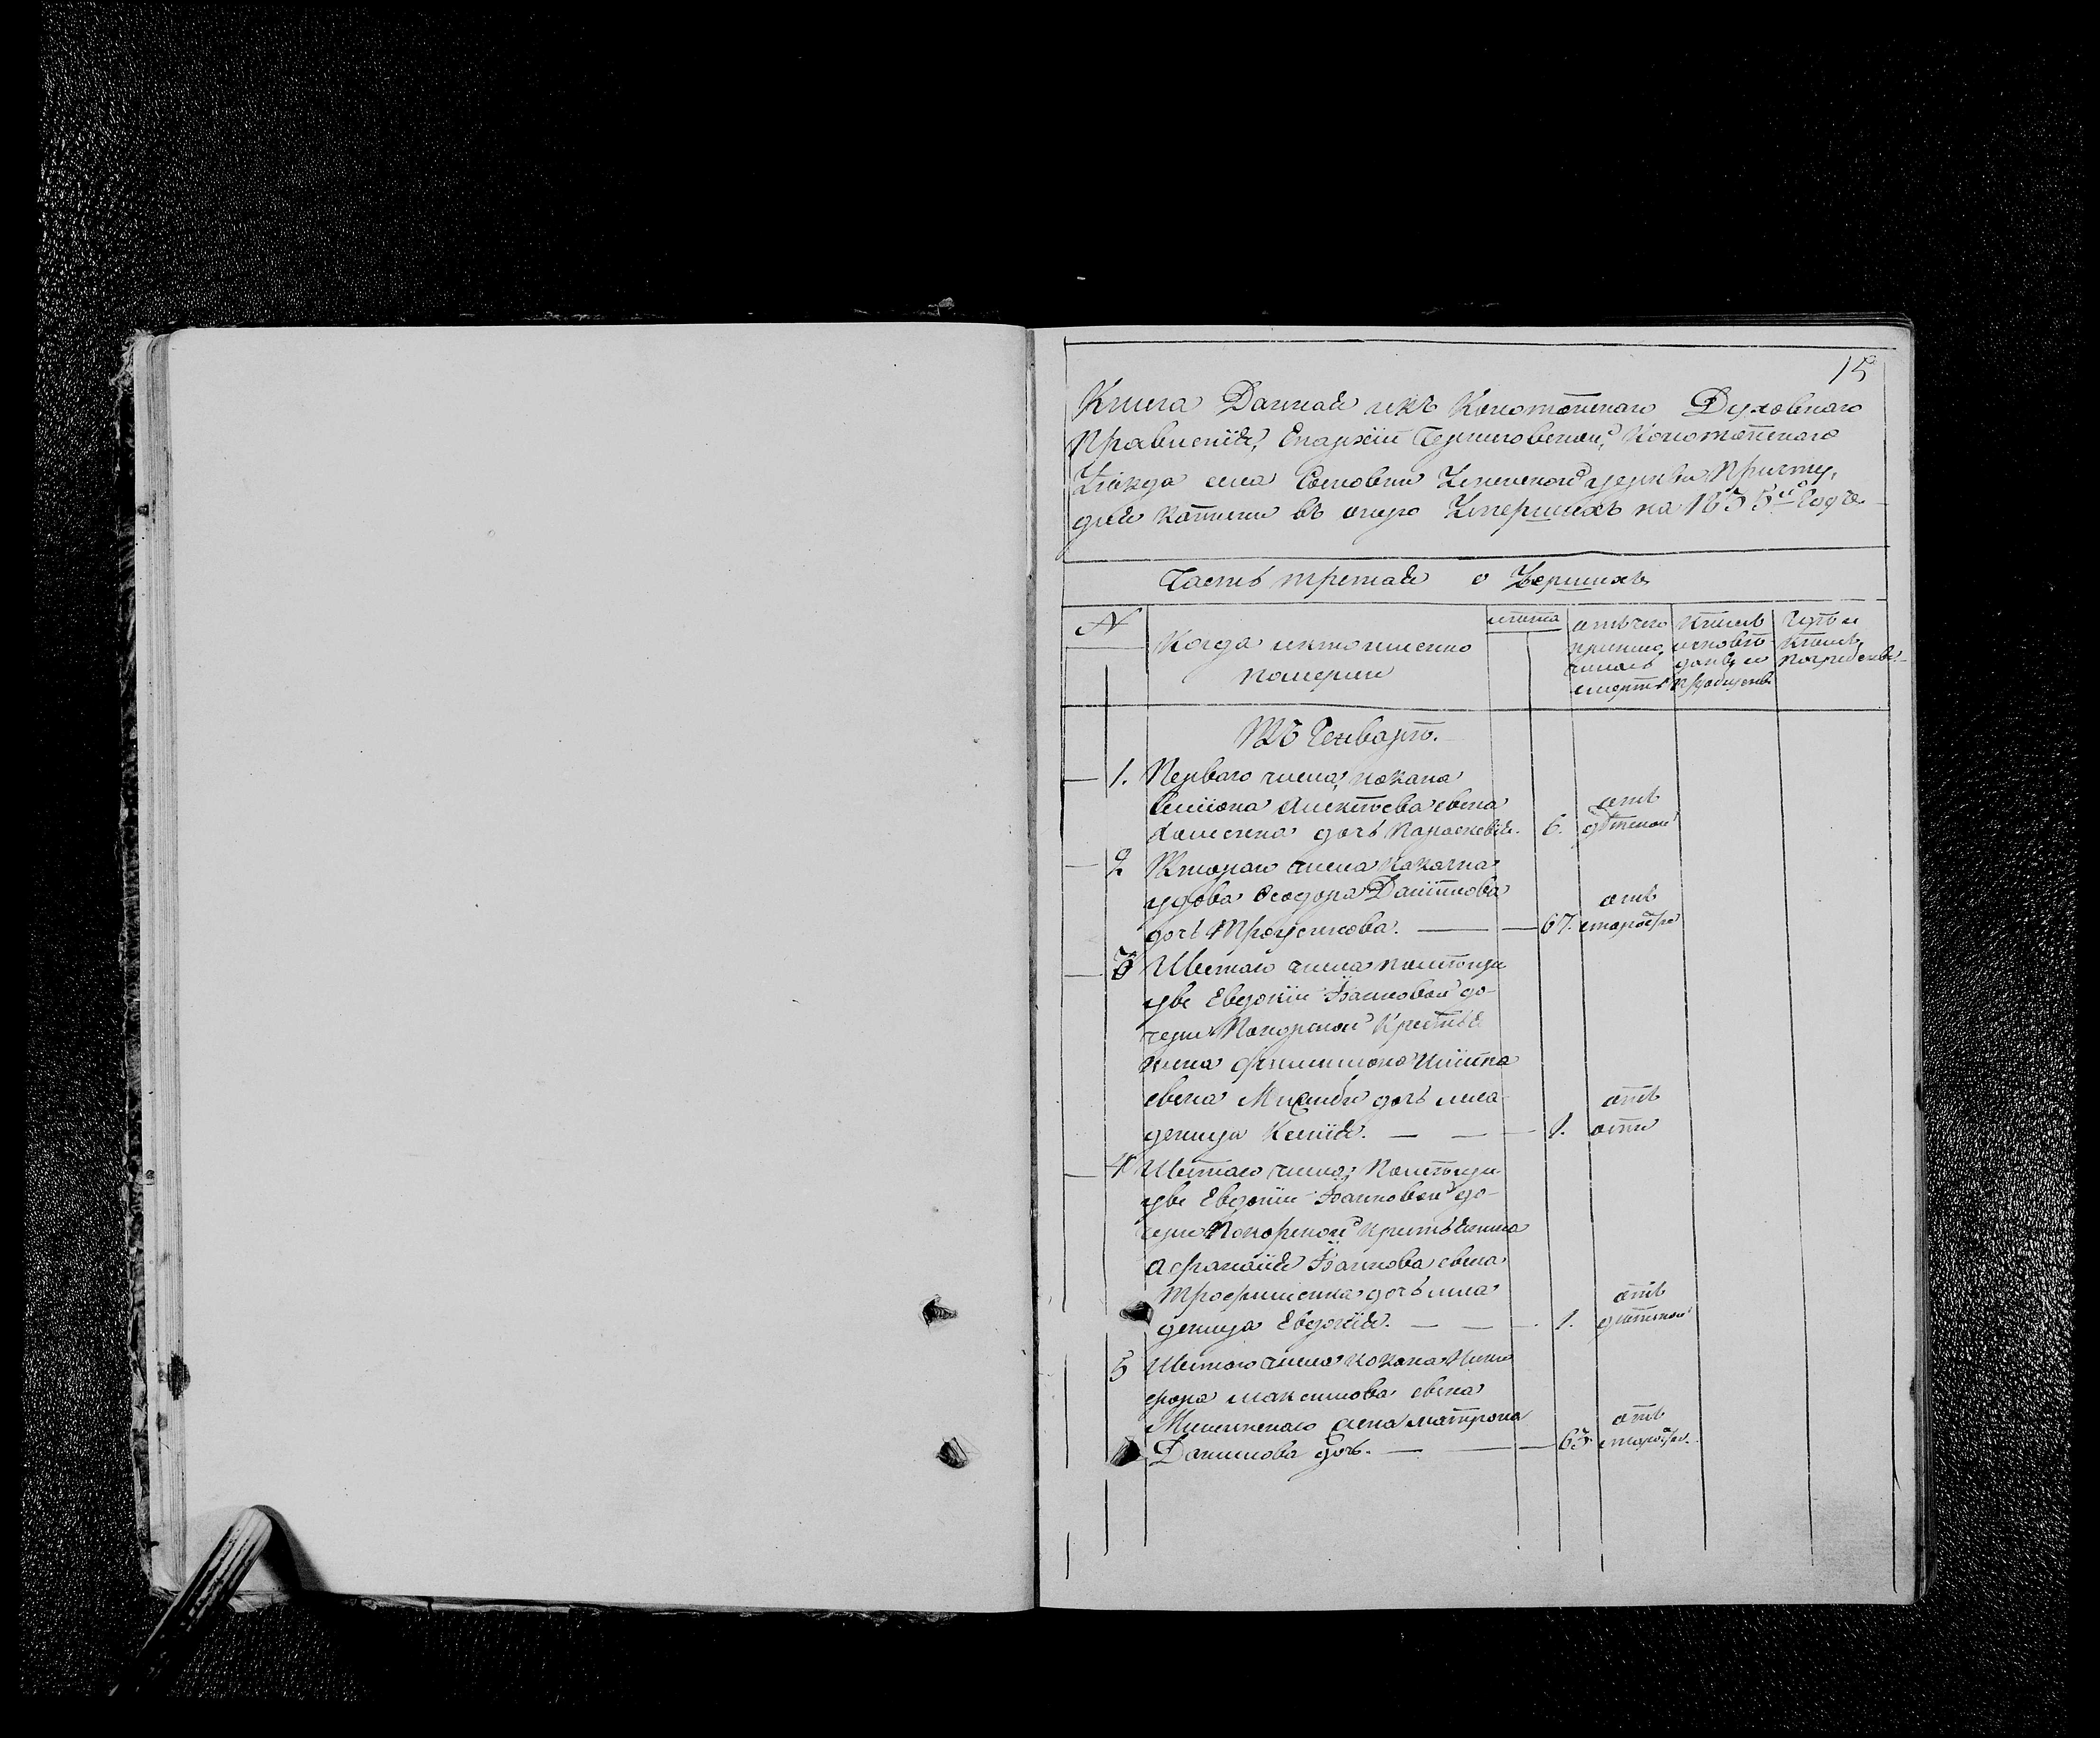 15
Книга Данная изъ Конотопскаго Духовнаго
Правленія, Епархіи Черниговской, Конотопскаго
Уѣзда села Успенской церкви Причту,
для записи въ оную Умершихъ на 1835й Годъ
Часть третая о Умершихъ
N
Когда и кто именно
померли
лѣта
отъ чего
приклю
чилась
смерть
кѣмъ
исповѣ
данъ и
пріобщенъ
Гдѣ и
кѣмъ
погребенъ
Въ Генварѣ.
1. Перваго числа, козака
Симіона Алексѣева сына
дочь Параскевія. 6. отъ
2 Втораго числа козачка
удова Феодора Даніилова
дочь Проценкова. — — 67. отъ старости
3 числа помѣщи
цы Евдокіи Іоанновой до-
чери Покорской Крестья
нина
сына дочь мла
деница Ксенія. — — — 1. отъ оспи
4 числа, Помѣщи
цы Евдокіи Іоанновой до-
чери Покорской крестьянина
Афанасія Іоаннова сына
Трофименка дочь мла
деница Евдокія. — — — 1. отъ
5 числа козака Ники
фора Максимова сына
жена Матрона
Данилова дочь. — — — 63 отъ старости.